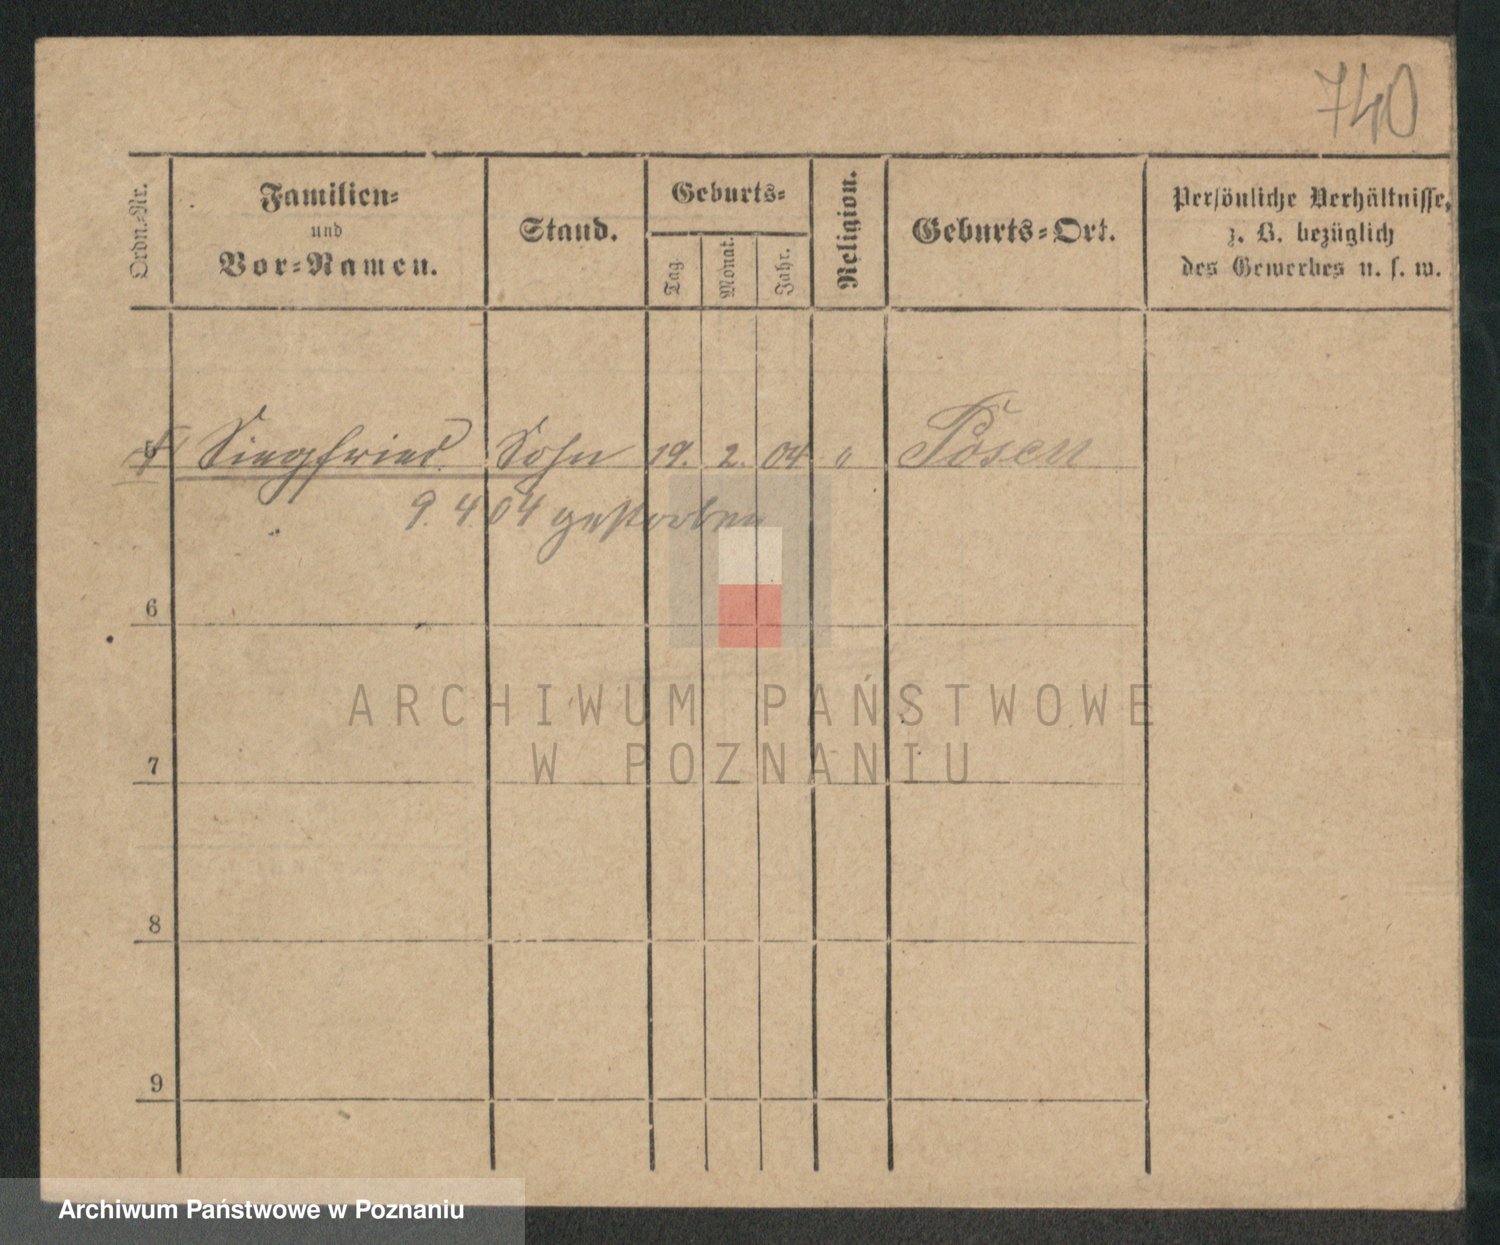 740
Ordn.-Nr.
Familien-
und
Vor-Namen.
Stand.
Geburts-
Tag.
Monat.
Jahr.
Religion.
Geburts-Ort.
Persönliche Verhältnisse,
z. B. bezüglich
des Gewerbes u. s. w.
5 Siegfried Sohn 19. 2. 04 " Posen
9. 4 04 gestorben
6
ARCHIWUM PAŃSTWOWE
W POZNANIU
7
8
9
Archiwum Państwowe w Poznaniu